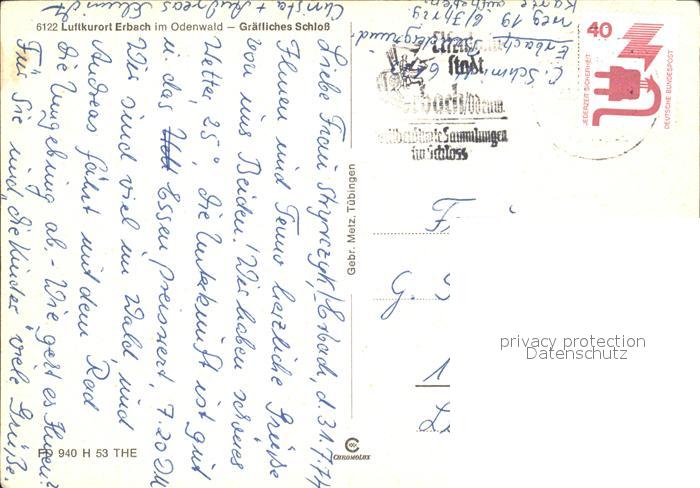 6122 Luftkurort Erbach im Odenwald — Gräfliches Schloß
Liebe Frau Erbach, d. 31.7.74
Ihnen und Temo herzliche Grüße
von uns Beiden! Wir haben schönes
Wetter, 25° die Unterkunft ist gut
u das Essen preiswert, 7.20 DM
Wir sind viel im Wald, und
Andreas fährt mit dem Rad
die Umgebung ab. - Wie geht es Ihnen?
Für Sie und die Kinder viele Grüße
Christa + Andreas Schmidt
C. Schmidt
Erbach
weg 19
Karte aufheben
40
JEDERZEIT SICHERHEIT
DEUTSCHE BUNDESPOST
stadt
Erbach/Odenw.
weltberühmte Sammlungen
im Schloss
Gebr. Metz, Tübingen
F
G
1
privacy protection
Datenschutz
CHROMOLUX
FD 940 H 53 THE